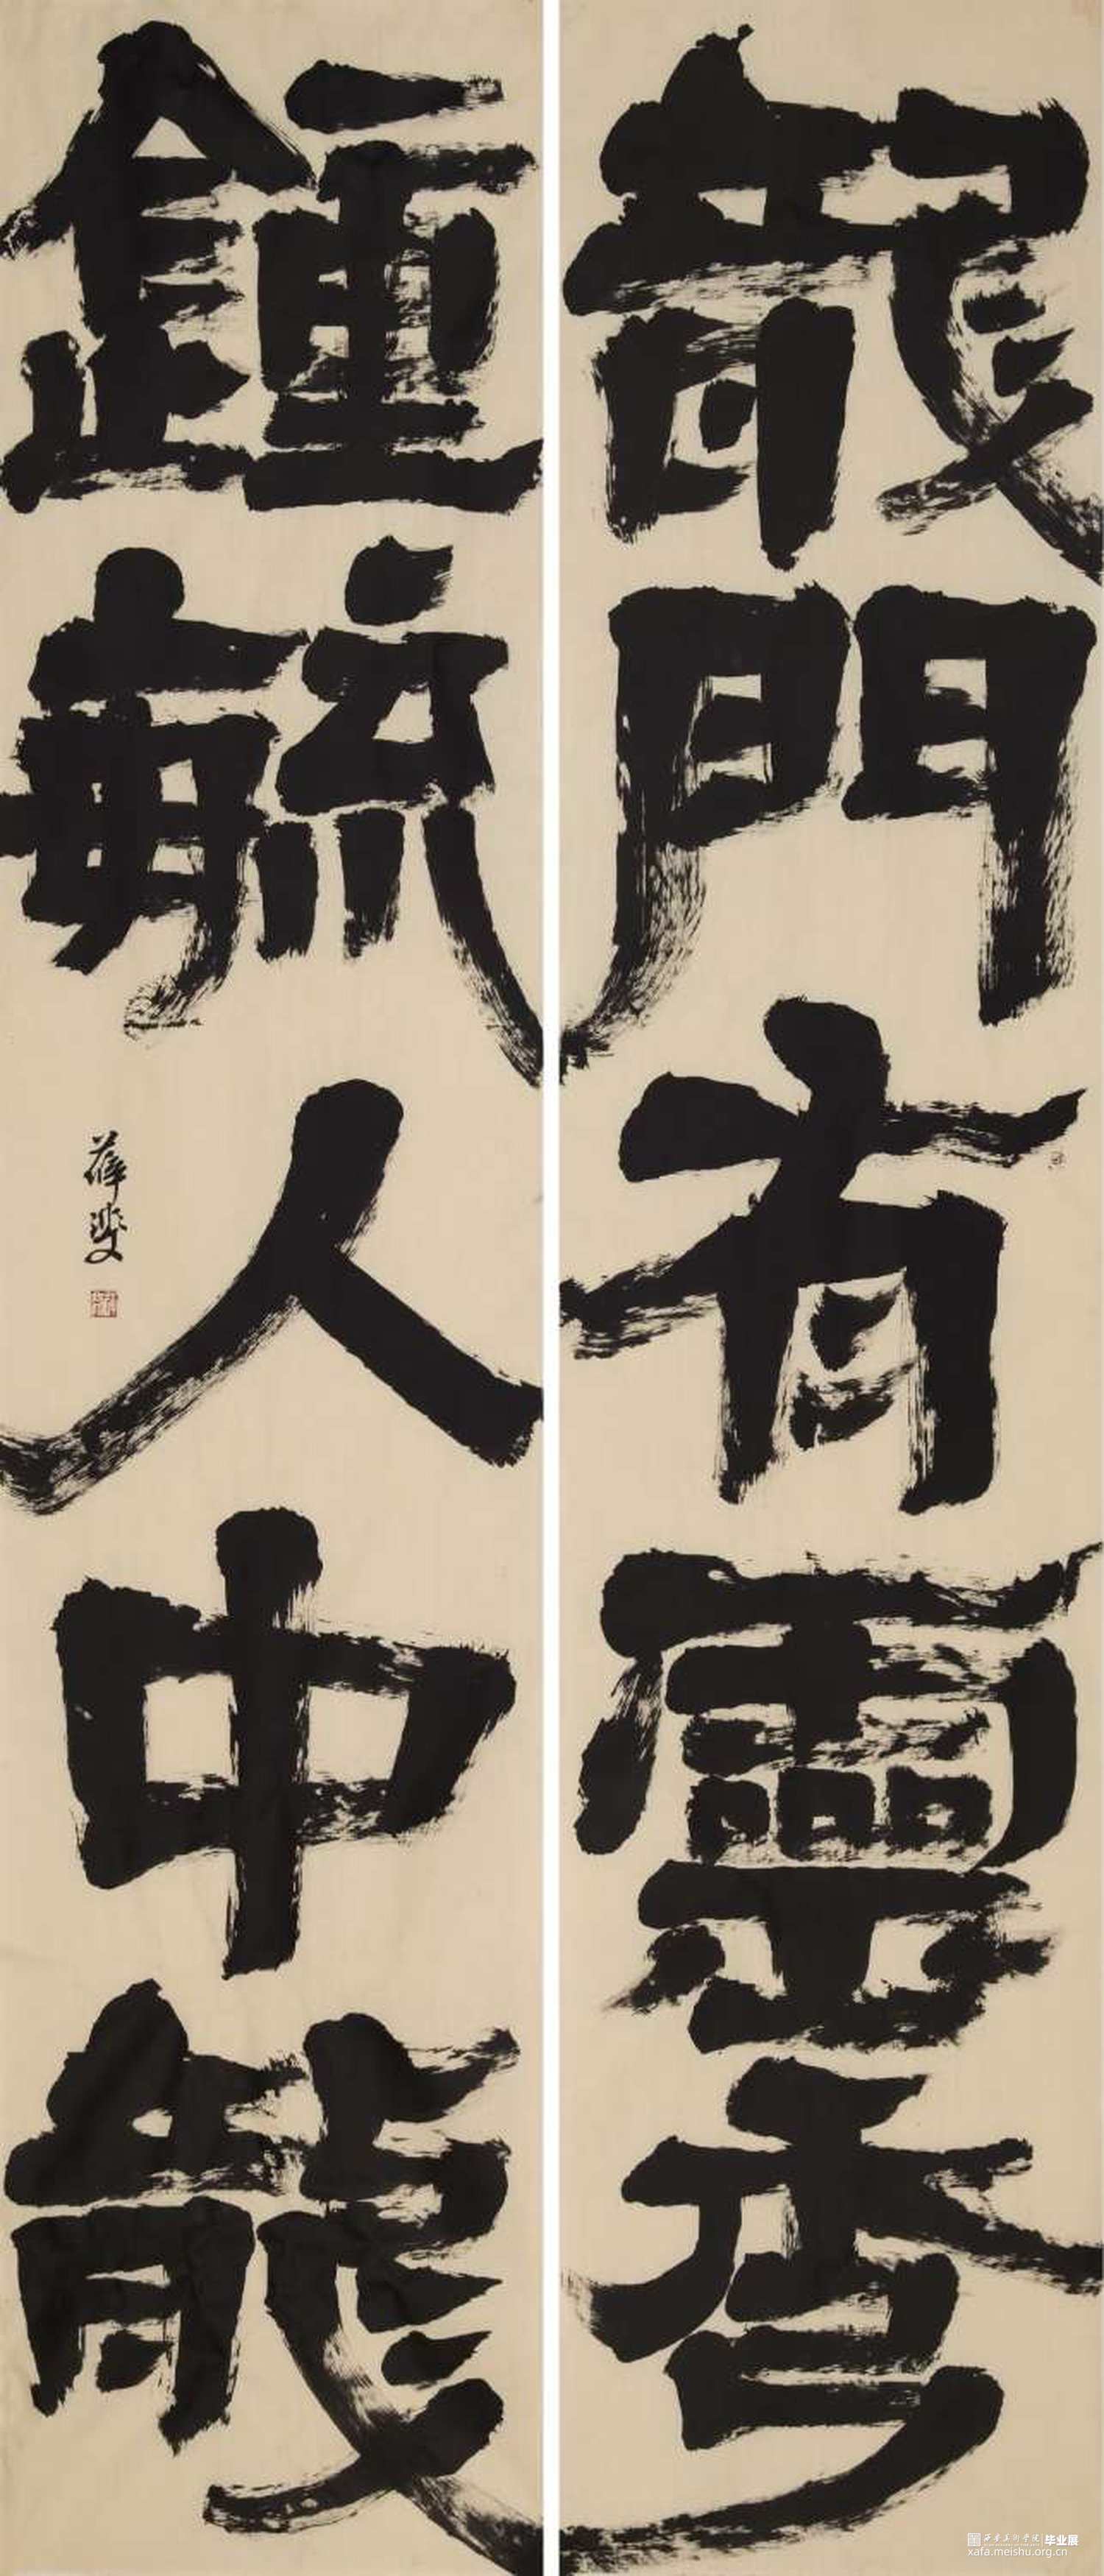 龍門有靈秀
鍾毓人中龍
薛斐
西安美術学院 毕业展
xafa.meishu.org.cn